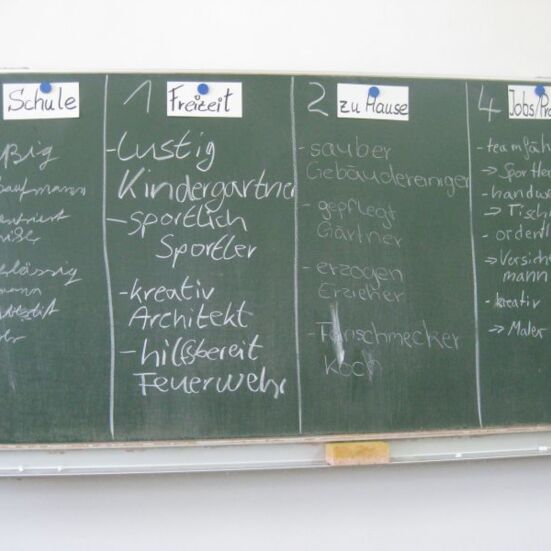 Schule
1 Freizeit
-lustig
Kindergärtner
-sportlich
Sportler
-kreativ
Architekt
-hilfsbereit
Feuerwehr
2 zu Hause
-sauber
Gebäudereiniger
-gepflegt
Gärtner
-erzogen
Erzieher
-Feinschmecker
Koch
4 Jobs/Pra
-teamfäh
→ Sportler
-handwe
→ Tisch
-ordentl
→ Versiche
mann
-kreativ
→ Maler